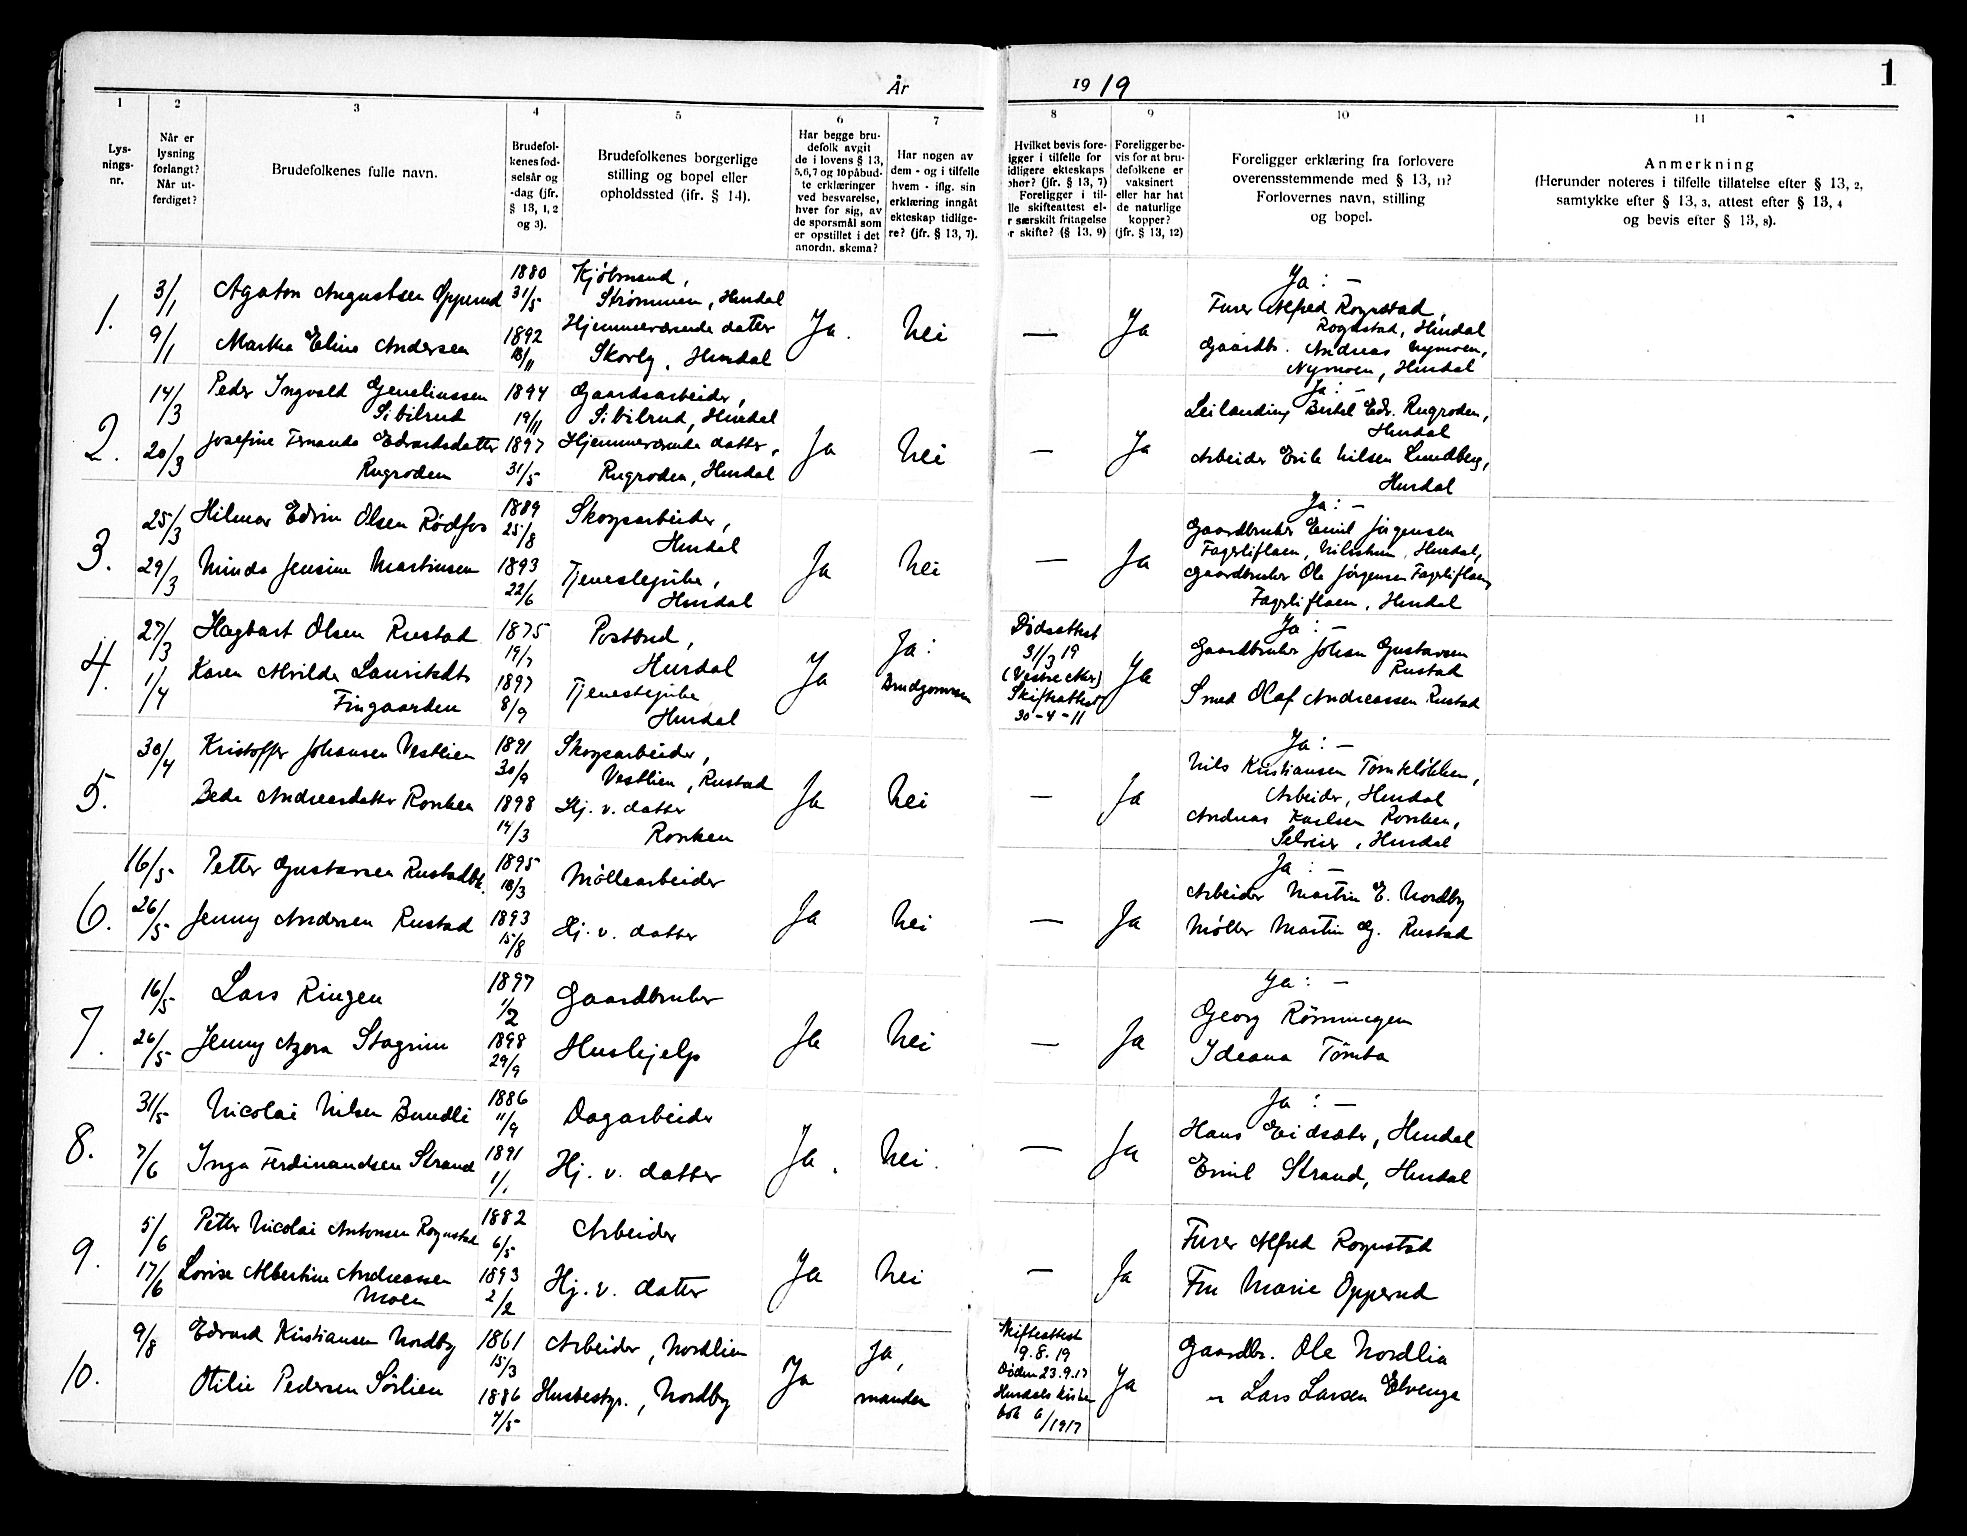 År 1919
1
1
Lys-
nings-
nr.
2
Når er
lysning
forlangt?
Når ut-
ferdiget?
3
Brudefolkenes fulle navn.
4
Brudefol-
kenes fød-
selsår og
-dag (jfr.
§ 13, 1, 2
og 3).
5
Brudefolkenes borgerlige
stilling og bopel eller
opholdssted (ifr. § 14).
6
Har begge bru-
defolk avgit
de i lovens § 13,
5,6,7 og 10 påbud-
te erklæringer
ved besvarelse,
hver for sig, av
de sporsmål som
er opstillet i det
anordn. skema?
7
Har nogen av
dem - og i tilfelle
hvem - iflg. sin
erklæring inngått
ekteskap tidlige-
re? (jfr. § 13, 7).
8
Hvilket bevis fore-
igger i tilfelle for
idligere ekteskaps
phør? (jfr. § 13, 7)
Foreligger i til-
lle skifteattest el-
r særskilt fritagelse
or skifte? (§ 13. 9)
9
Foreligger be-
vis for at bru-
defolkene er
vaksinert
eller har hat
de naturlige
kopper?
(jfr. § 13, 12)
10
Foreligger erklæring fra forlovere
overensstemmende med § 13, 11?
Forlovernes navn, stilling
og bopel.
11
Anmerkning
(Herunder noteres i tilfelle tillatelse efter § 13, 2,
samtykke efter § 13, 3, attest efter § 13, 4
og bevis efter § 13, 8).
1.
3/1
9/1
Agaton Augustsen Opperud
Martha Eline Andersen
1880
31/5
1892
18/11
Kjøbmand,
Strømmen, Hurdal
Hjemmeværende datter
Skovly, Hurdal
Ja.
Nei
—
Ja
Ja: —
Furer Alfred Rognstad,
Rognstad, Hurdal
Gaardbr. Andreas Nymoen,
Nymoen, Hurdal
2.
14/3
20/3
Peder Ingvald Geneliussen
Sibilrud
Josefine Fernanda Edvardsdatter
Rugroden
1894
19/11
1897
31/5
Gaardsarbeider,
Sibilrud, Hurdal
Hjemmeværende datter,
Rugroden, Hurdal
Ja
Nei
—
Ja
Ja: —
Leilending Bertel Edv. Rugroden,
Hurdal
Arbeider Erik Nilsen Lundberg,
Hurdal
3.
25/3
29/3
Hilmar Edvin Olsen Rødfos
Minda Jensine Martinsen
1889
25/8
1893
22/6
Skogsarbeider,
Hurdal
Tjenestepike,
Hurdal
Ja
Nei
—
Ja
Ja: —
Gaardbruker Emil Jørgensen
Fagerliflaen, Hurdal,
Gaardbruker Ole Jørgensen Fagerliflaen,
Fagerliflaen, Hurdal
4.
27/3
1/4
Hagbart Olsen Rustad
Karen Alvilde Lauritsdtr
Fingaarden
1875
19/7
1897
8/9
Postbud,
Hurdal
Tjenestepike
Hurdal
Ja
Ja:
Brudgommen
Dødsattest
31/3 19
(Vestre Aker)
Skifteattest
30-4-11
Ja
Ja: —
Gaardbruker Johan Gustavsen
Rustad
Smed Olaf Andreassen Rustad
5.
30/4
Kristoffer Johansen Vestlien
Beda Andreasdatter Ronken
1891
30/9
1898
14/3
Skogsarbeider,
Vestlien, Rustad
Hj. v. datter
Ronken
Ja
Nei
—
Ja
Ja: —
Nils Kristiansen Tømteløkken,
Arbeider, Hurdal
Andreas Karlsen Ronken,
Selveier, Hurdal
6.
16/5
26/5
Petter Gustavsen Rustadbk.
Jenny Andersen Rustad
1895
18/3
1893
15/8
Møllearbeider
Hj. v. datter
Ja
Nei
—
Ja
Ja: —
Arbeider Martin E. Nordby
Møller Martin G. Rustad
7.
16/5
26/5
Lars Ringen
Jenny Agora Stagrim
1897
1/2
1898
29/9
Gaardbruker
Hushjelp
Ja
Nei
—
Ja
Ja: —
Georg Rømmingen
Ideana Tømta
8.
31/5
7/6
Nicolai Nilsen Bundli
Inga Ferdinandsen Strand
1886
11/9
1891
1/1
Dagarbeider
Hj. v. datter
Ja.
Nei.
—
Ja
Ja: —
Hans Eidsæter, Hurdal
Emil Strand, Hurdal
9.
5/6
17/6
Petter Nicolai Antonsen Rognstad
Lovise Albertine Andreassen
Moen
1882
6/5
1893
2/2
Arbeider
Hj. v. datter
Ja
Nei
—
Ja
Furer Alfred Rognstad
Fru Marie Opperud
10.
9/8
Edvard Kristiansen Nordby
Otilie Pedersen Sørlien
1861
15/3
1886
4/5
Arbeider, Nordlien
Husbestyr., Nordby
Ja
Ja,
manden
Skifteattest
9.8.19
Døden 23.9.17
Hurdals kirke
bok 6/1917
Ja
Gaardbr. Ole Nordlia
" Lars Larsen Elvenga